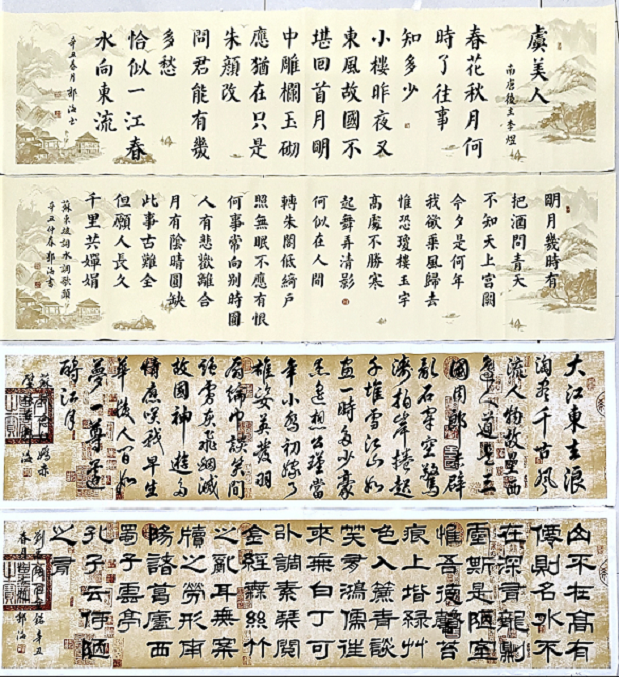 虞美人
南唐後主李煜
春花秋月何
時了往事
知多少
小樓昨夜又
東風故國不
堪回首月明
中雕欄玉砌
應猶在只是
朱顏改
問君能有幾
多愁
恰似一江春
水向東流
辛丑春月郭海書
明月幾時有
把酒問青天
不知天上宮闕
今夕是何年
我欲乘風歸去
惟恐瓊樓玉宇
高處不勝寒
起舞弄清影
何似在人間
轉朱閣低綺戶
照無眠不應有恨
何事常向別時圓
人有悲歡離合
月有陰晴圓缺
此事古難全
但願人長久
千里共嬋娟
蘇東坡詞水調歌頭
辛丑仲春郭海書
大江東去浪
淘盡千古風
流人物故壘西
邊人道是三
國周郎赤壁
亂石穿空驚
濤拍岸捲起
千堆雪江山如
畫一時多少豪
傑遙想公瑾當
年小喬初嫁了
雄姿英發羽
扇綸巾談笑間
強虜灰飛煙滅
故國神遊多
情應笑我早生
華髮人間如
夢一尊還
酹江月
山不在高有
僊則名水不
在深有龍則
靈斯是陋室
惟吾德馨苔
痕上堦綠艸
色入簾青談
笑有鴻儒往
來無白丁可
以調素琴閱
金經無絲竹
之亂耳無案
牘之勞形南
陽諸葛廬西
蜀子雲亭
孔子云何陋
之有
劉禹錫陋室銘辛丑
春月郭海